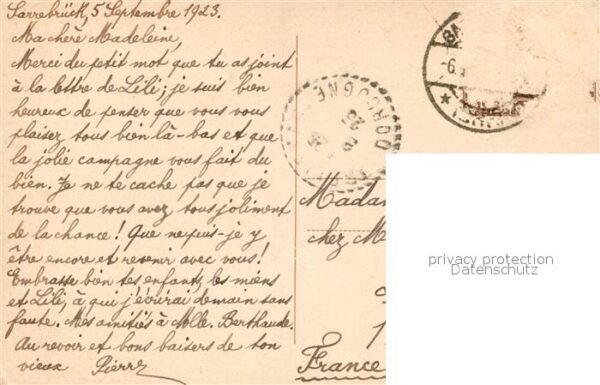 Sarrebrück, 5 Septembre 1923.
Ma chère Madeleine,
Merci du petit mot que tu as joint
à la lettre de Lili; je suis bien
heureux de penser que vous vous
plaisez tous bien là-bas et que
la jolie campagne vous fait du
bien. Je ne te cache pas que je
trouve que vous avez tous joliment
de la chance! Que ne puis-je y
être encore et revenir avec vous!
Embrasse bien tes enfants, les miens
et Lili, à qui j'écrirai demain sans
faute. Mes amitiés à Melle. Berthaude.
Au revoir et bons baisers de ton
vieux Pierre
DORDOGNE
-6.
Madam
chez Me
France
privacy protection
Datenschutz